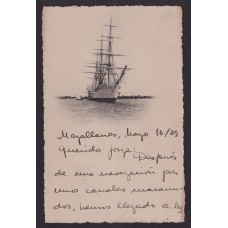 Magallanes, Mayo 16/29
Querido Jorge: Después
de una navegación por
unos canales
hemos llegado a